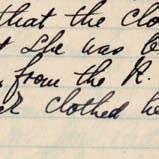 that the clo
she was b
from the R.
clothed he